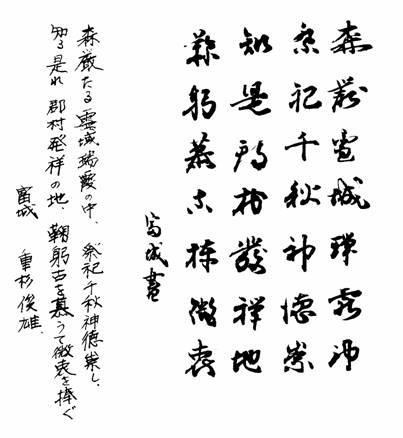 森厳霊域瑞霞沖
祭祀千秋神徳崇
知是郡村發祥地
鞠躬慕古捧微衷
富城書
森厳たる霊域瑞霞の中、祭祀千秋神徳崇し、
知る是れ郡村発祥の地、鞠躬古を慕うて微衷を捧ぐ
富城 重杉俊雄